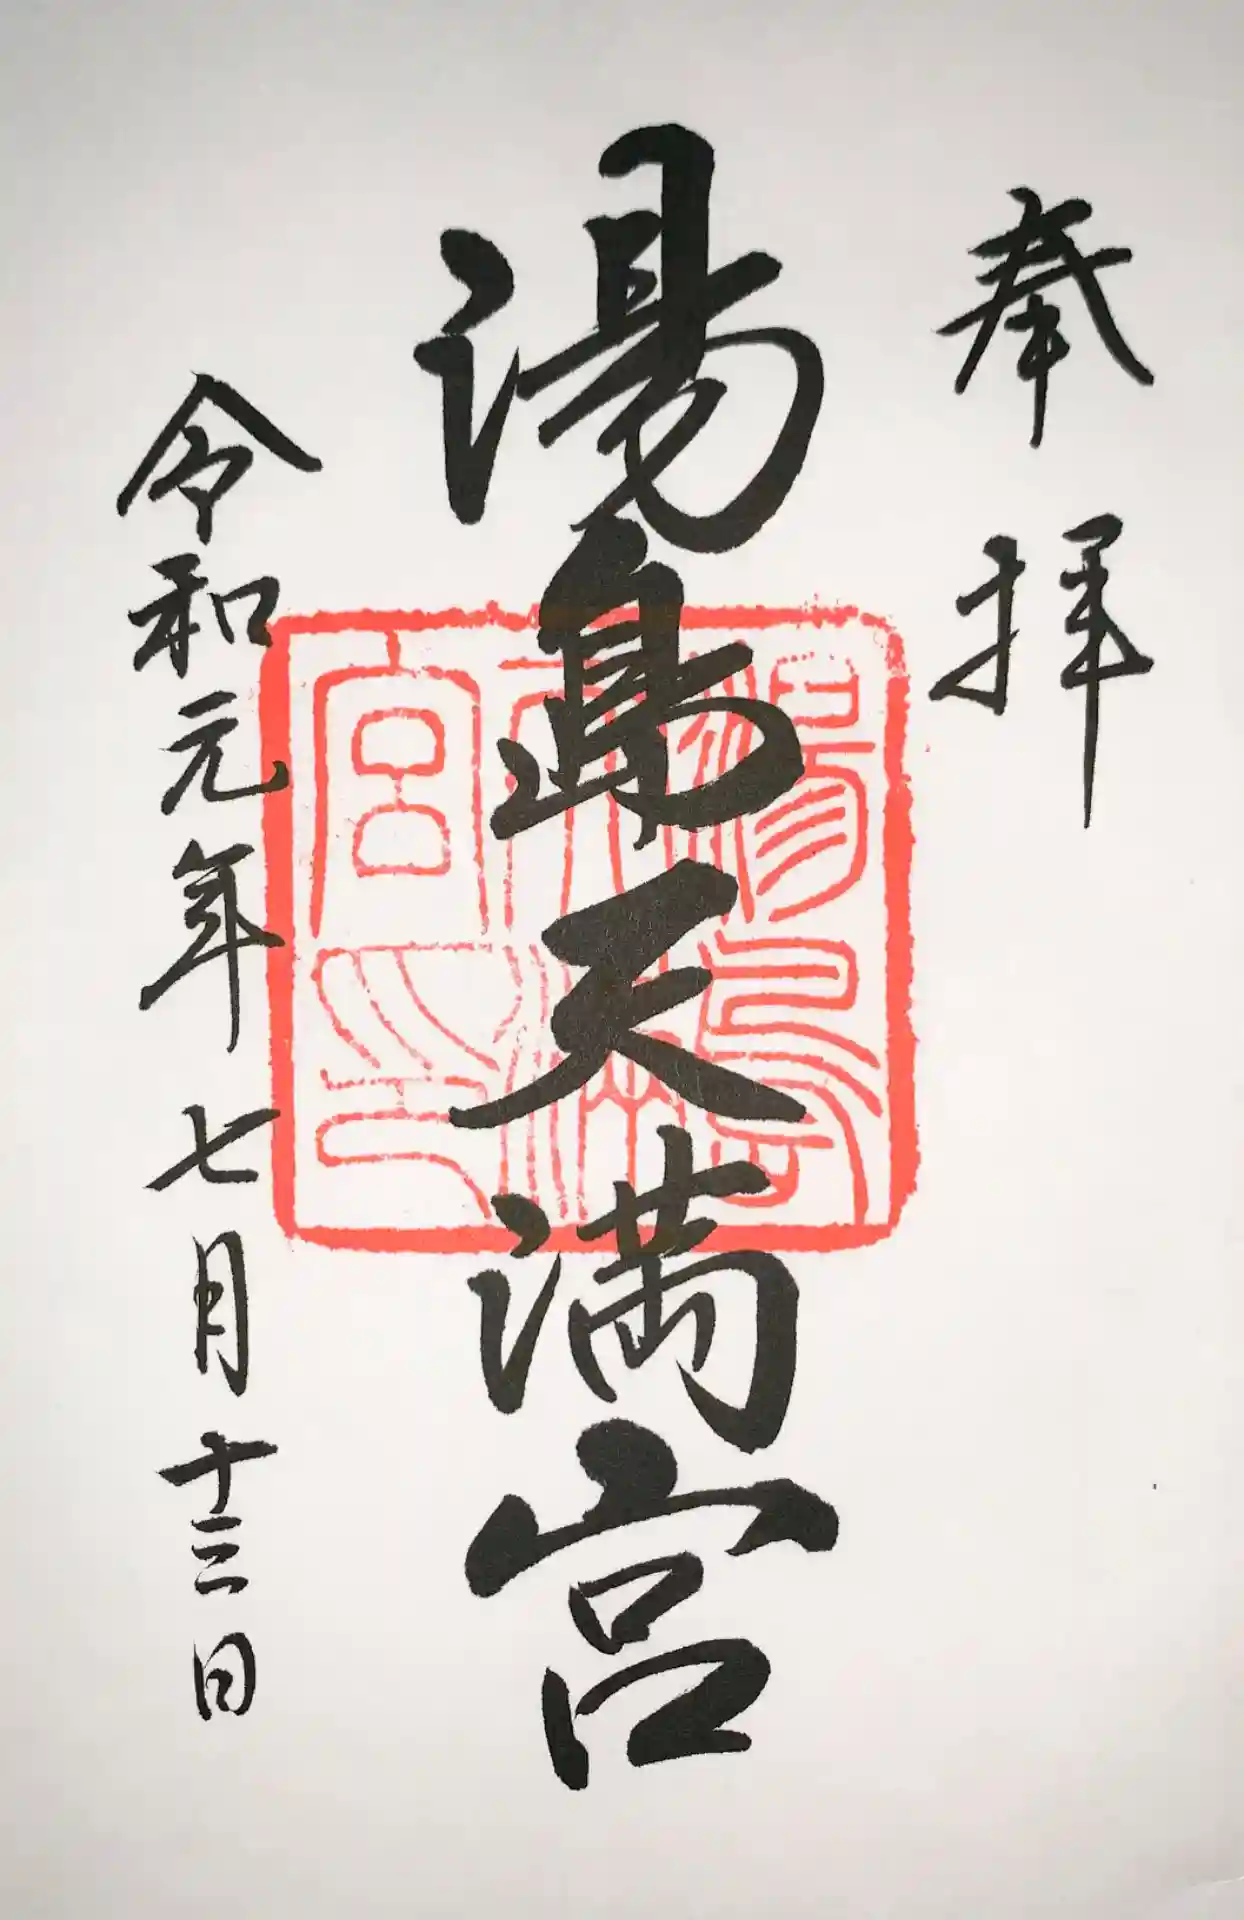 奉拝
湯島天満宮
湯島天満宮之印
令和元年七月十三日